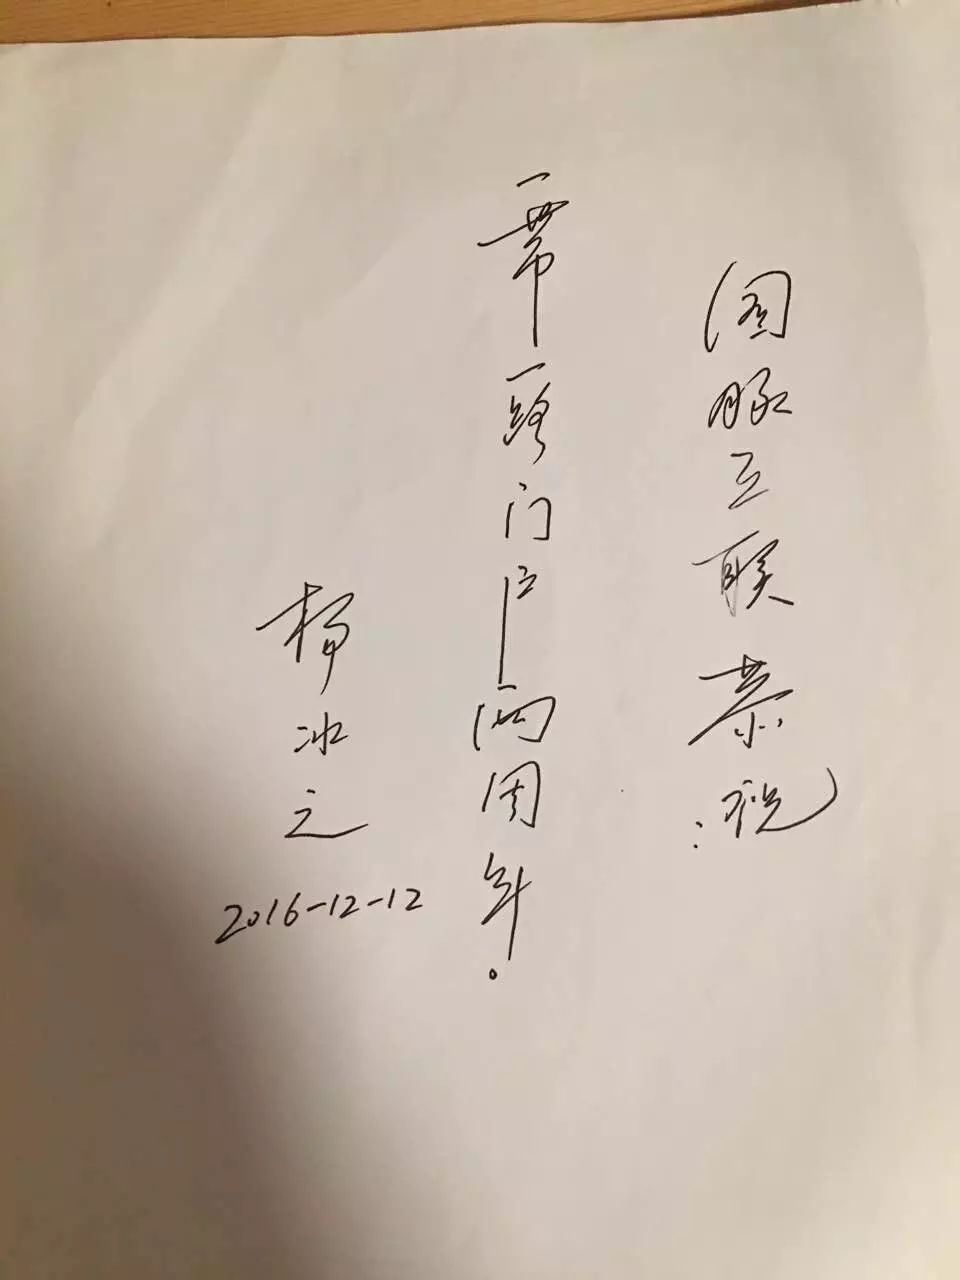 图豚互联恭祝:
一带一路门户两周年。
杨冰之
2016-12-12